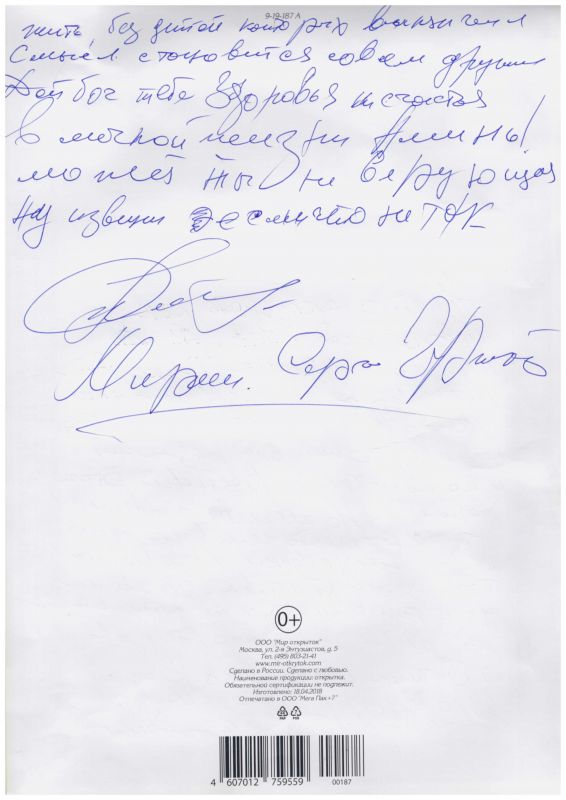 9-19-187 А
жить без детей которых
Смысл становится совсем другим
Дай бог тебе Здоровья и счастья
в личной жизни Аминь!
может ты и не верующая
ну извини если что не так
0+
ООО "Мир открыток"
Москва, ул. 2-я Энтузиастов, д. 5
Тел. (495) 803-21-41
www.mir-otkrytok.com
Сделано в России. Сделано с любовью.
Наименование продукции: открытка.
Обязательной сертификации не подлежит.
Изготовлено: 18.04.2018
Отпечатано в ООО "Мега Пак+7"
4 607012 759559 00187